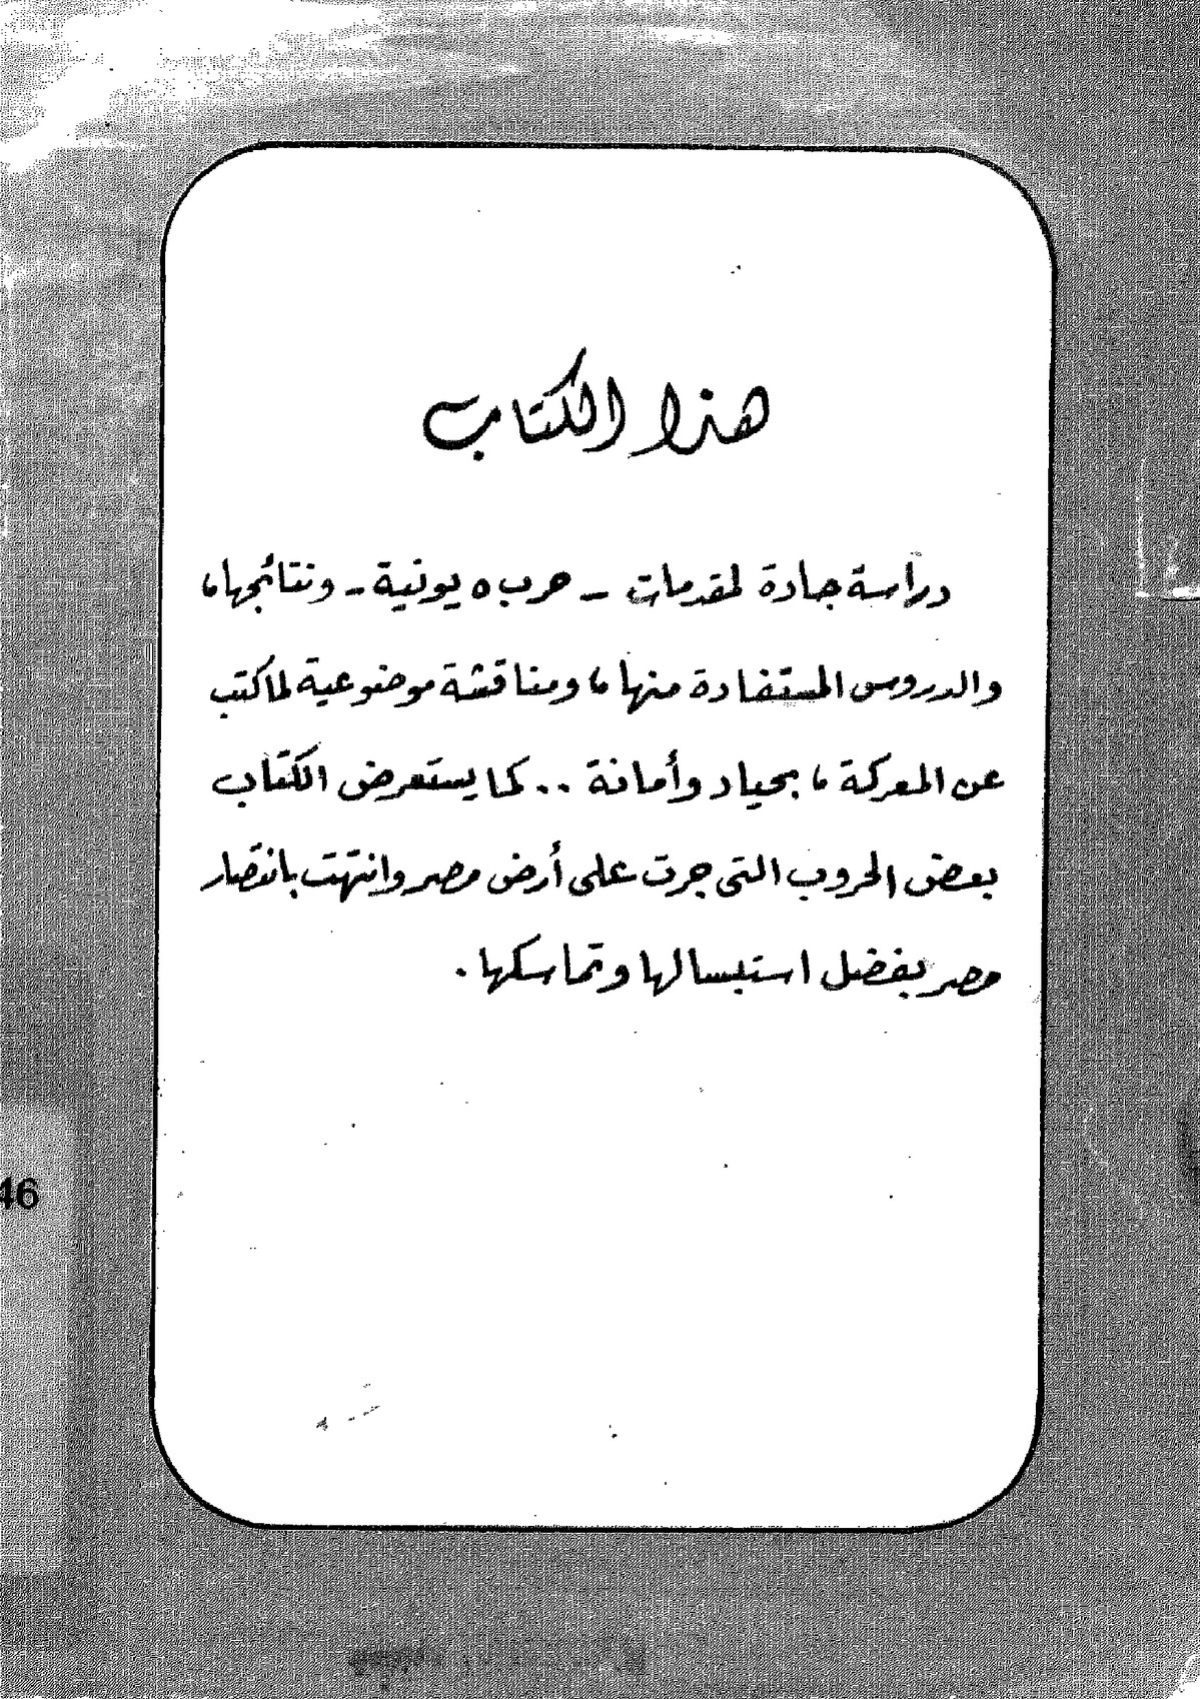 هذا الكتاب
دراسة جادة لمقدمات - حرب ٥ يونية - ونتائجها،
والدروس المستفادة منها، ومناقشة موضوعية لما كتب
عن المعركة، بحياد وأمانة .. كما يستعرض الكتاب
بعض الحروب التى جرت على أرض مصر وانتهت بانتصار
مصر بفضل استبسالها وتماسكها.
46